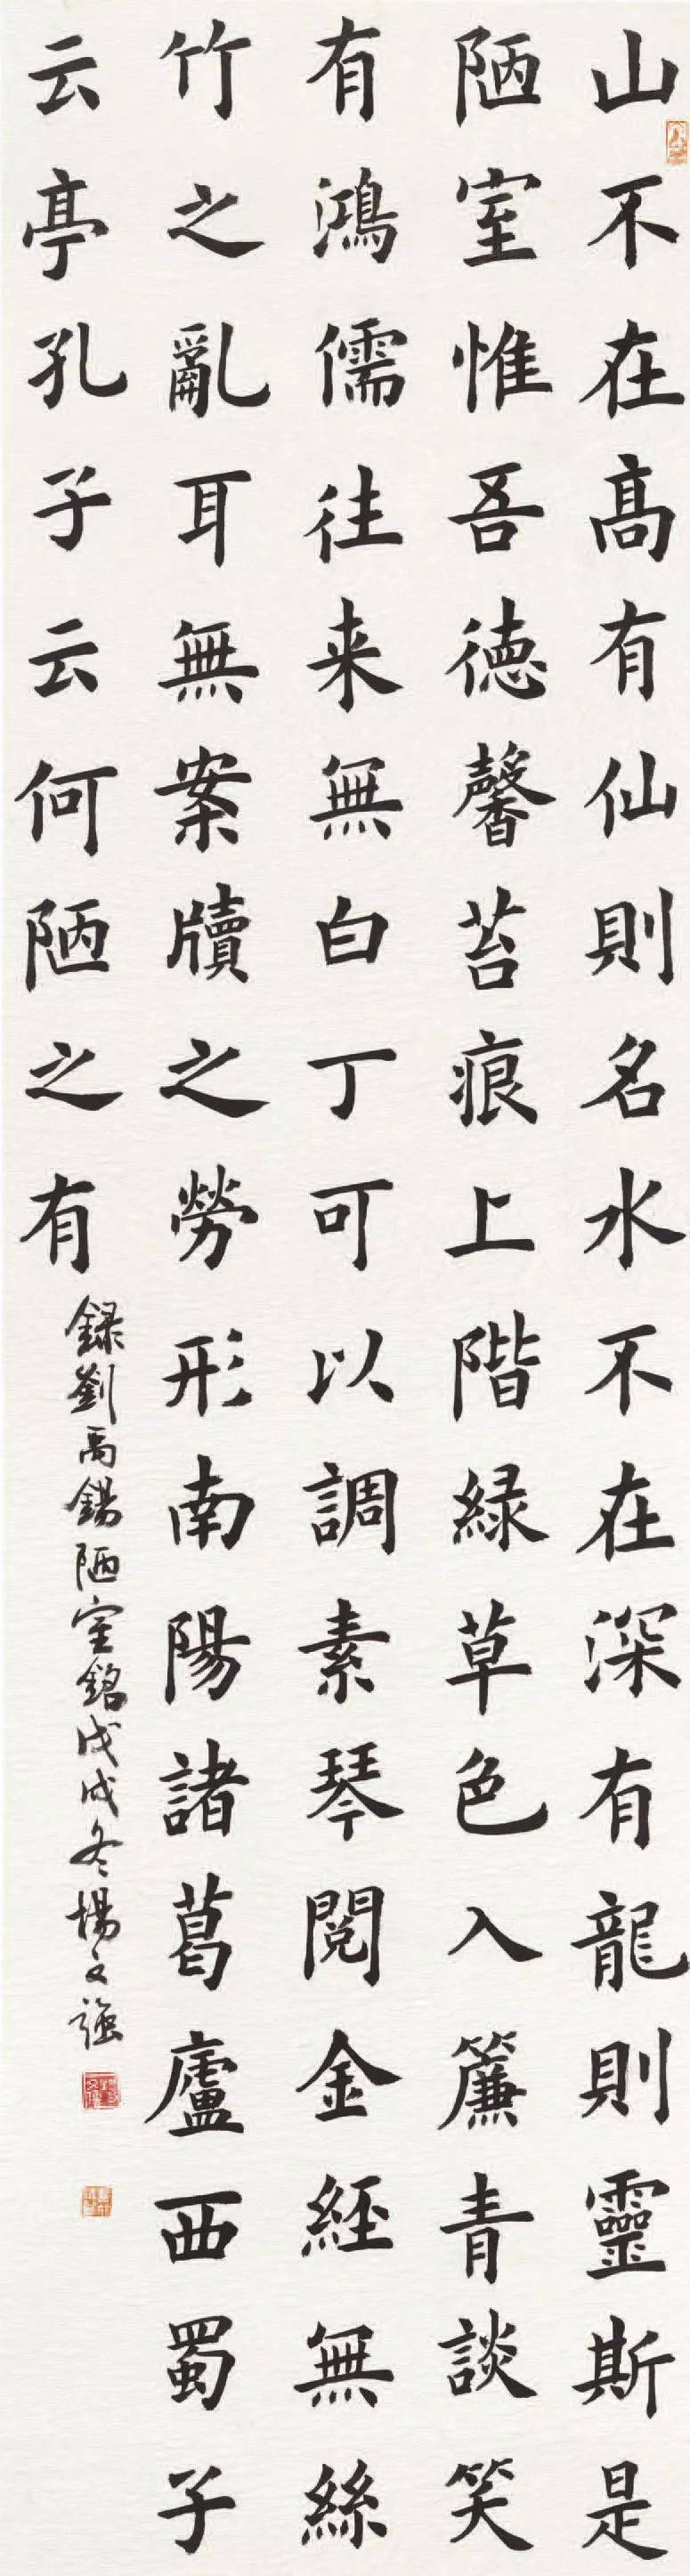 山不在高有仙則名水不在深有龍則靈斯是
陋室惟吾德馨苔痕上階緑草色入簾青談笑
有鴻儒往来無白丁可以調素琴閱金經無絲
竹之亂耳無案牘之勞形南陽諸葛廬西蜀子
云亭孔子云何陋之有
録劉禹錫陋室銘戊戌冬楊文強